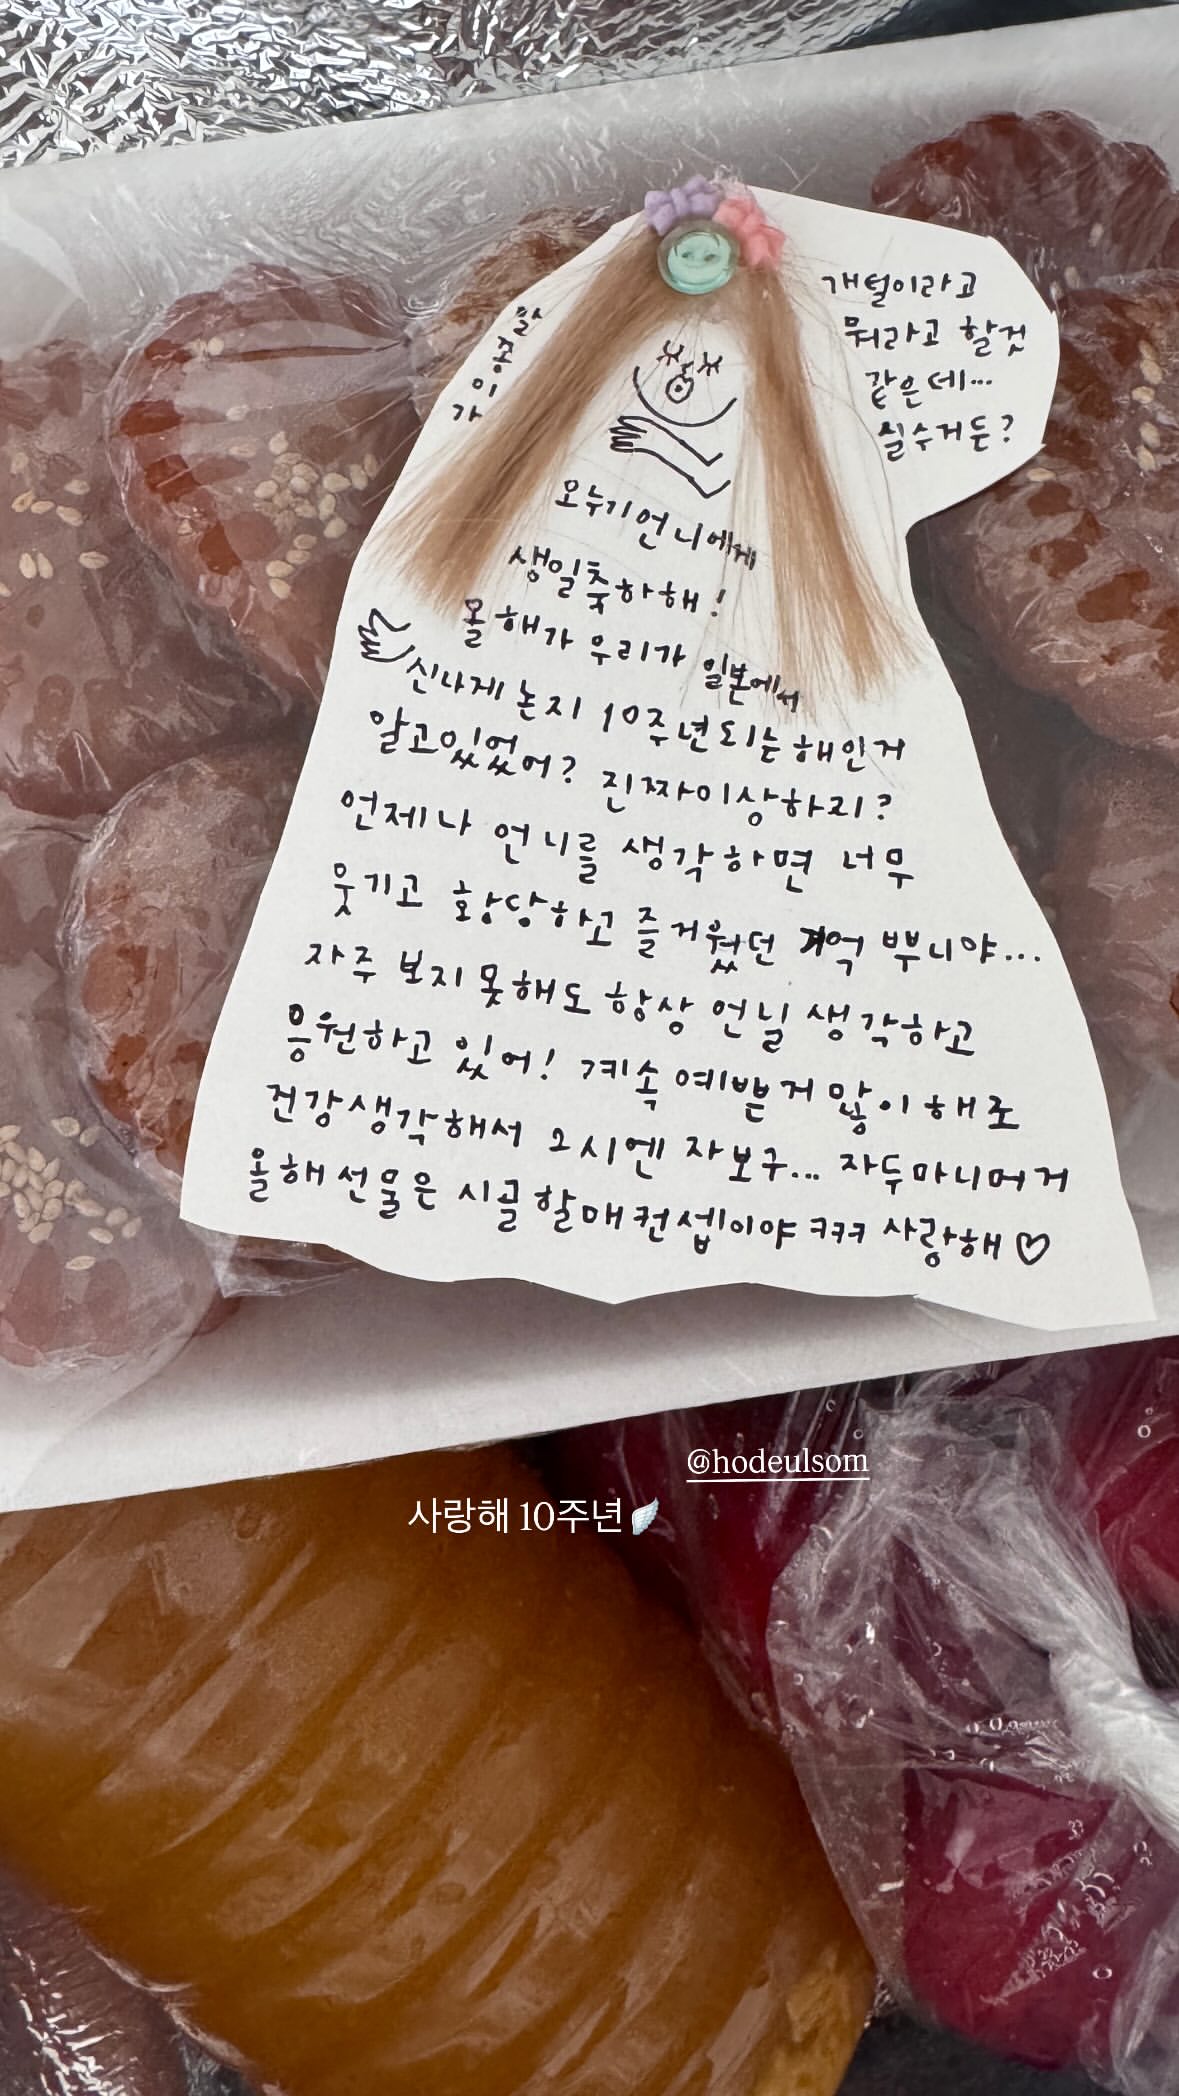 개털이라고
뭐라고 할것
같은데...
실수거든?
말괭이가
오누기언니에게
생일축하해!
올해가 우리가 일본에서
신나게 논지 10주년되는해인거
알고있었어? 진짜이상하리?
언제나 언니를 생각하면 너무
웃기고 황당하고 즐거웠던 기억 뿌니야...
자주 보지 못해도 항상 언닐 생각하고
응원하고 있어! 계속 예쁜거많이해조
건강생각해서 2시엔 자보구... 자두마니머거
올해선물은 시골할매컨셉이야 ㅋㅋㅋ 사랑해♡
@hodeulsom
사랑해 10주년🪽